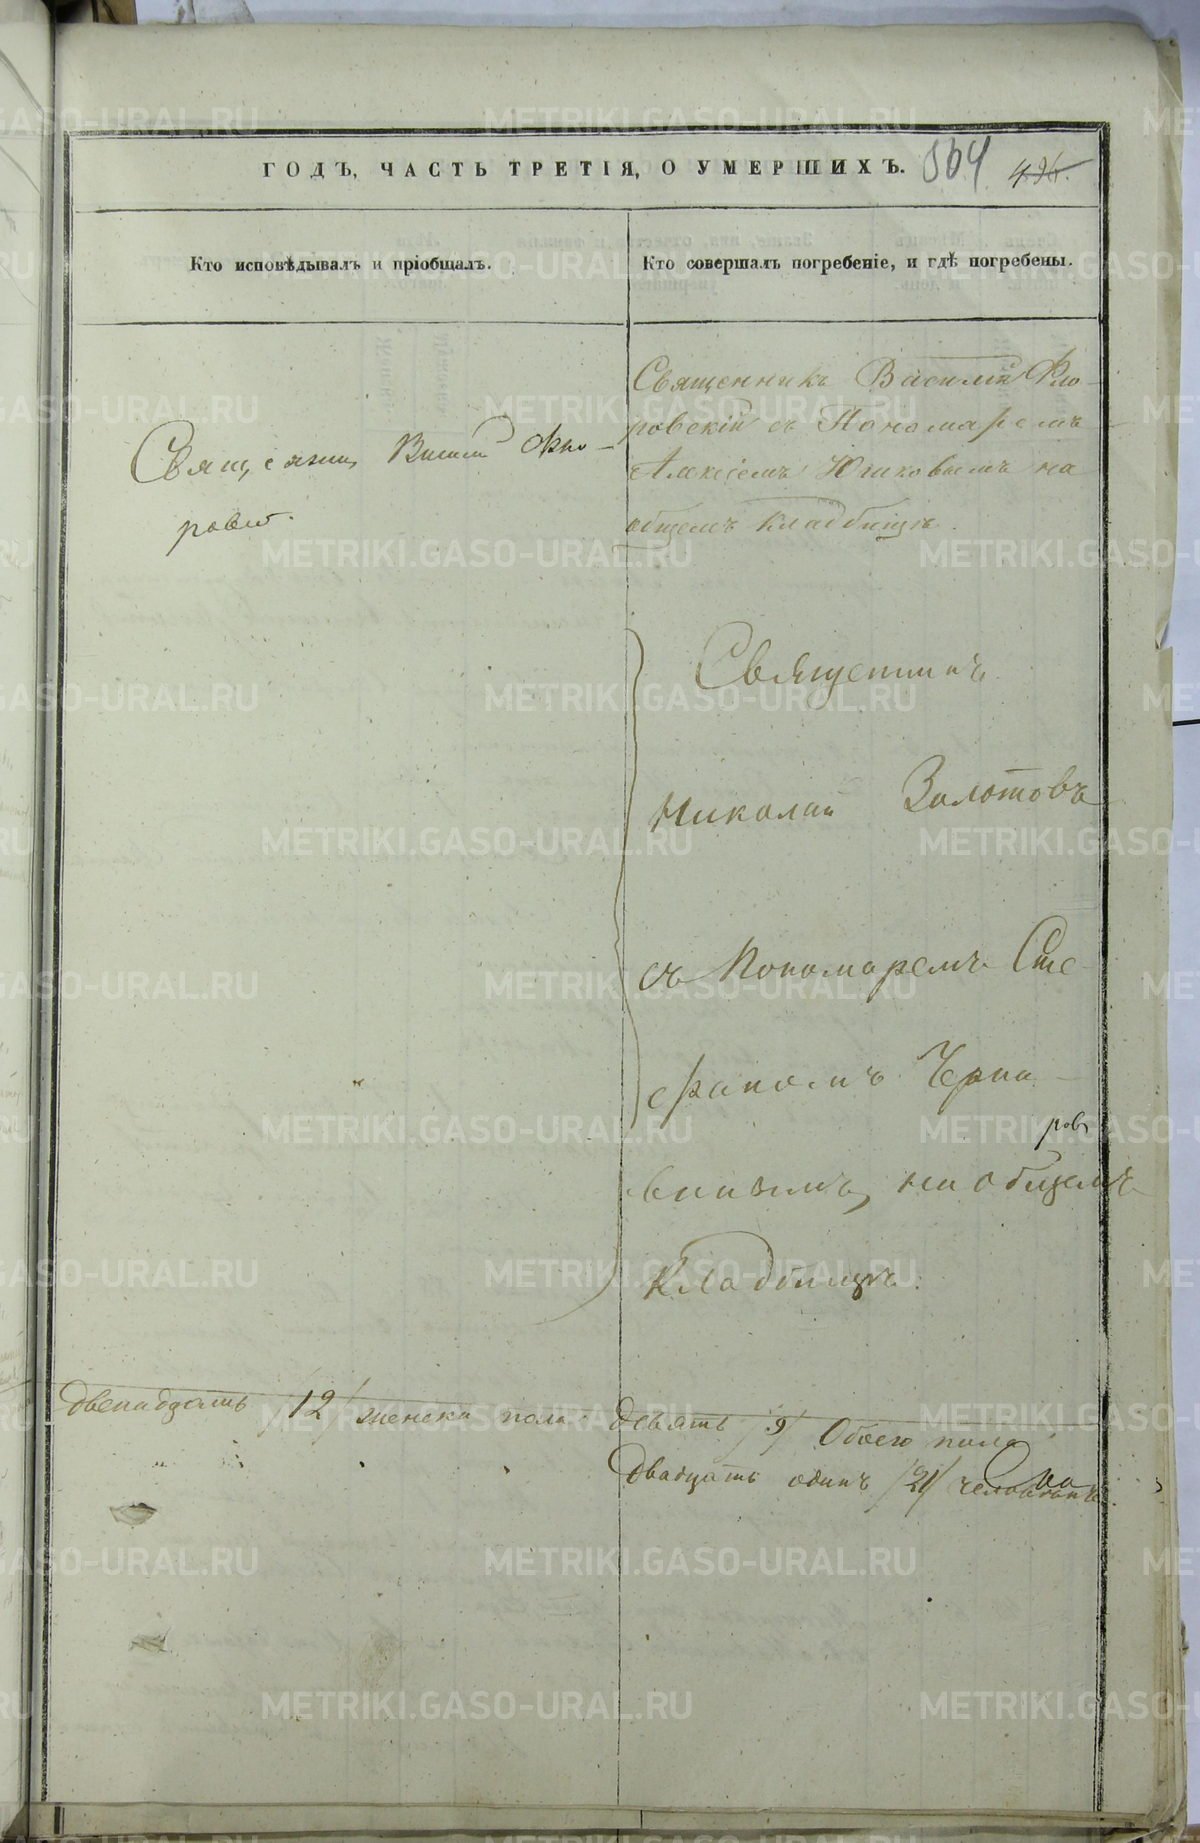 ГОДЪ, ЧАСТЬ ТРЕТІЯ, О УМЕРШИХЪ. 504 496.
Кто исповѣдывалъ и пріобщалъ.
Кто совершалъ погребеніе, и гдѣ погребены.
Священникъ Василій Фло-
ровскій съ Пономаремъ
Алексіемъ Юшковымъ на
общемъ кладбищѣ.
Священ Васили Фло-
ровс
Священникъ
Николай Золотовъ
съ Пономаремъ Сте
фаномъ Черна
виинымъ на общемъ
Кладбищѣ.
двенадцать /12/ женска пола девять /9/ Обоего пола
двадцать одинъ /21/ человекъ
METRIKI.GASO-URAL.RU